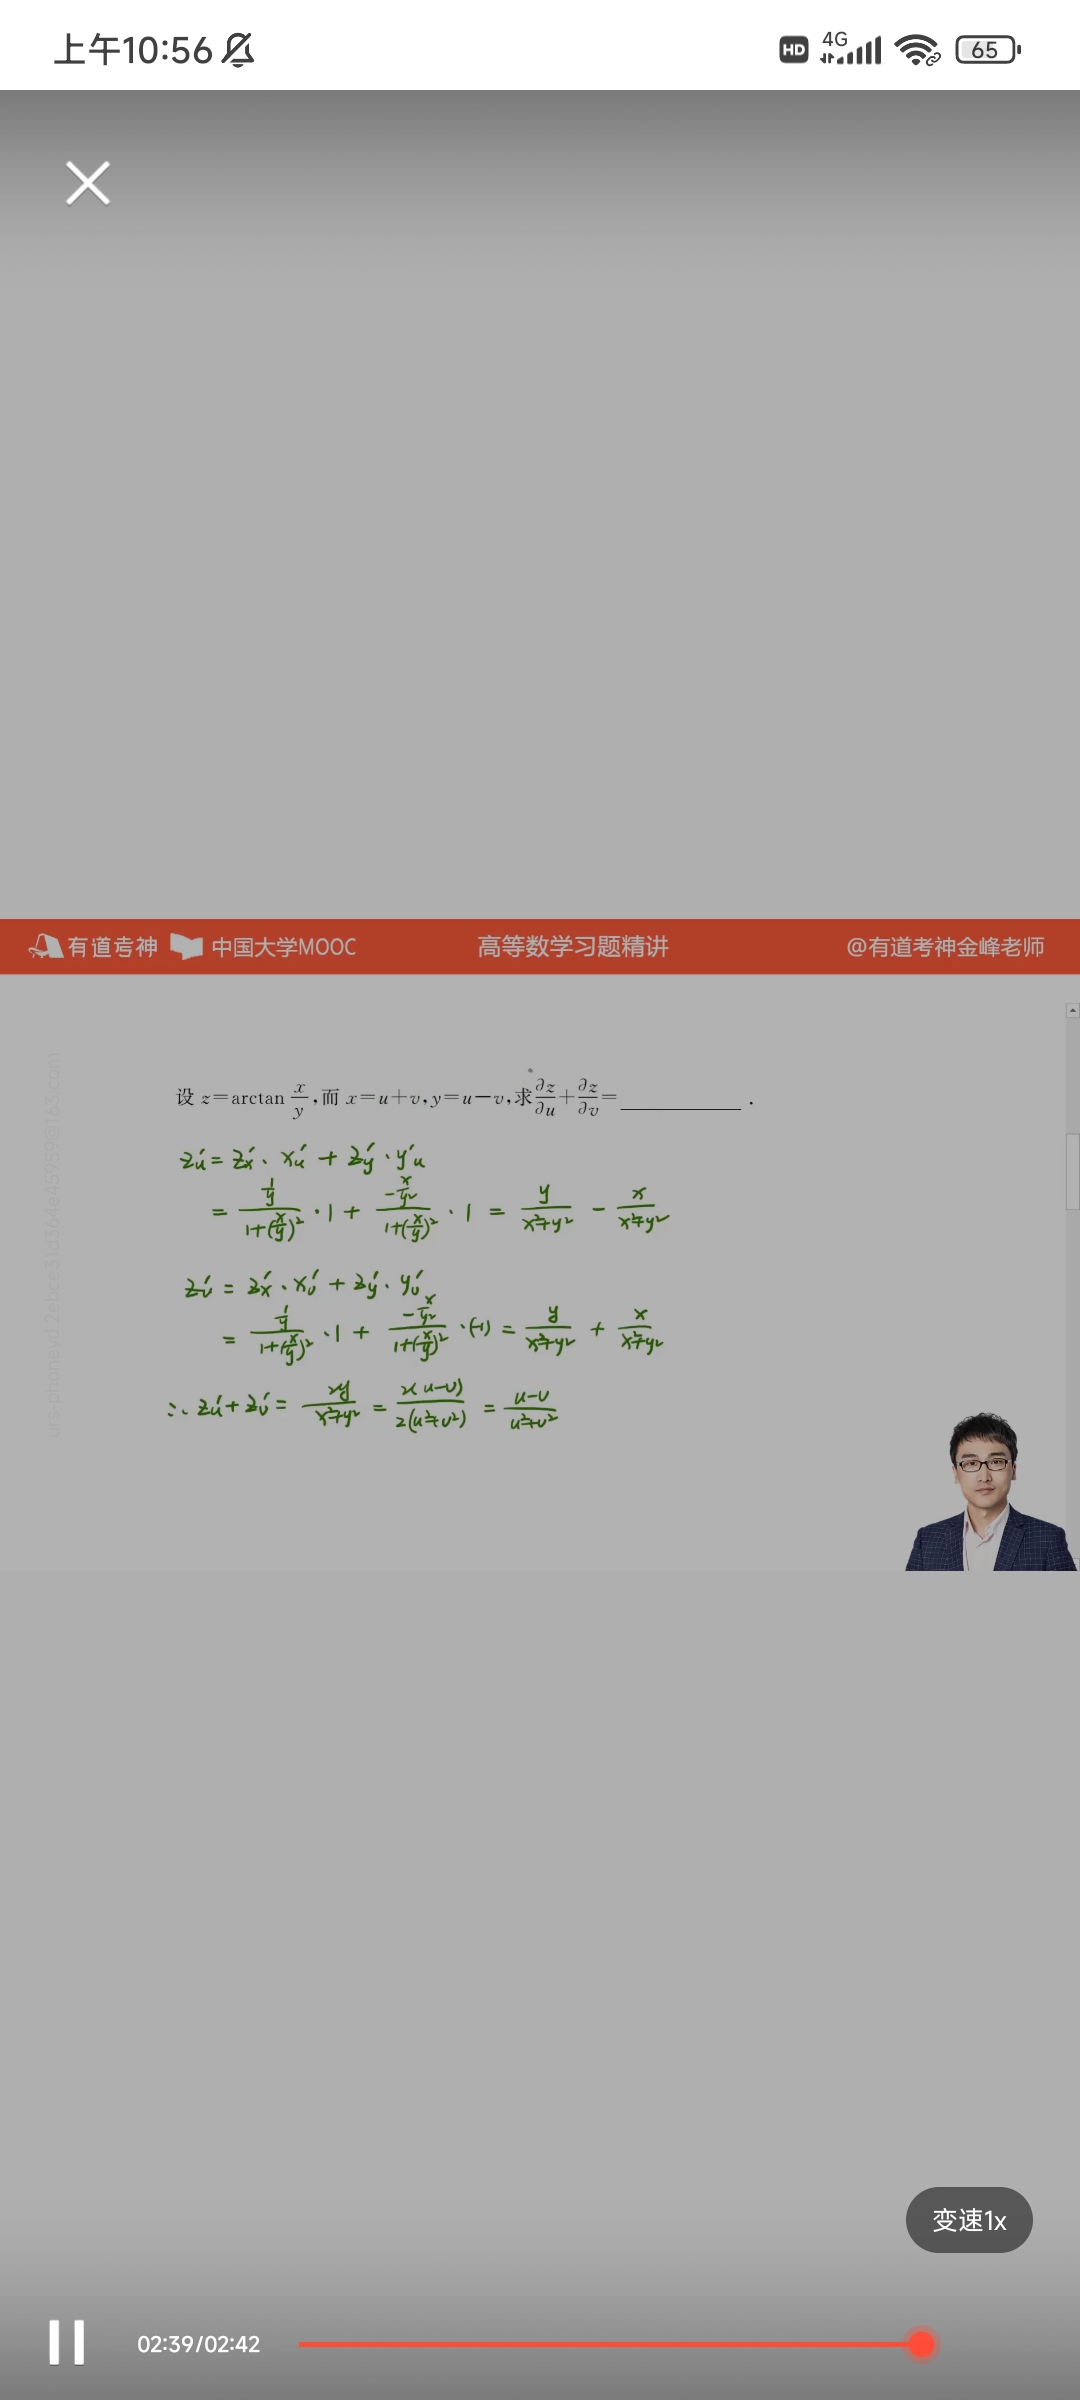 上午10:56 HD 4G 65
有道考神 中国大学MOOC 高等数学习题精讲 @有道考神金峰老师
设 z=arctan x/y,而 x=u+v,y=u-v,求∂z/∂u+∂z/∂v=____________.
z'u = z'x · x'u + z'y · y'u
= (1/y)/(1+(x/y)²) · 1 + (-x/y²)/(1+(x/y)²) · 1 = y/(x²+y²) - x/(x²+y²)
z'v = z'x · x'v + z'y · y'v
= (1/y)/(1+(x/y)²) · 1 + (-x/y²)/(1+(x/y)²) · (-1) = y/(x²+y²) + x/(x²+y²)
∴ z'u + z'v = 2y/(x²+y²) = 2(u-v)/2(u²+v²) = (u-v)/(u²+v²)
变速1x
02:39/02:42